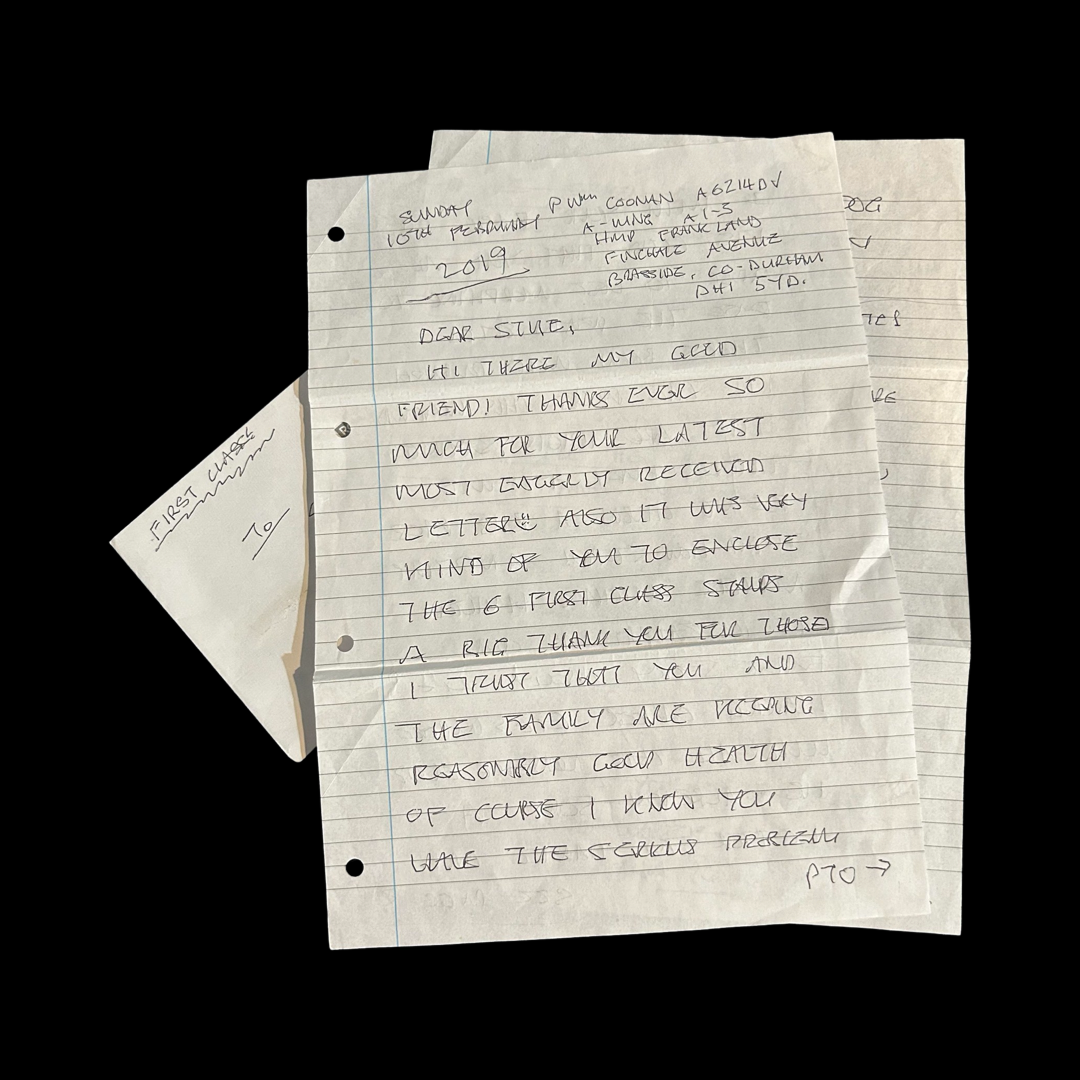 SUNDAY
10TH FEBRUARY
2019
P Wm COONAN A6214DV
A-WING A1-3
HMP FRANKLAND
FINCHALE AVENUE
BRASSIDE, CO-DURHAM
DH1 5YD.
DEAR STUE,
HI THERE MY GOOD
FRIEND! THANKS EVER SO
MUCH FOR YOUR LATEST
MOST EAGERLY RECEIVED
LETTER ALSO IT WAS VERY
KIND OF YOU TO ENCLOSE
THE 6 FIRST CLASS STAMPS
A BIG THANK YOU FOR THOSE
I TRUST THAT YOU AND
THE FAMILY ARE KEEPING
REASONABLY GOOD HEALTH
OF COURSE I KNOW YOU
HAVE THE SERIOUS PROBLEM
PTO →
FIRST CLASS
TO